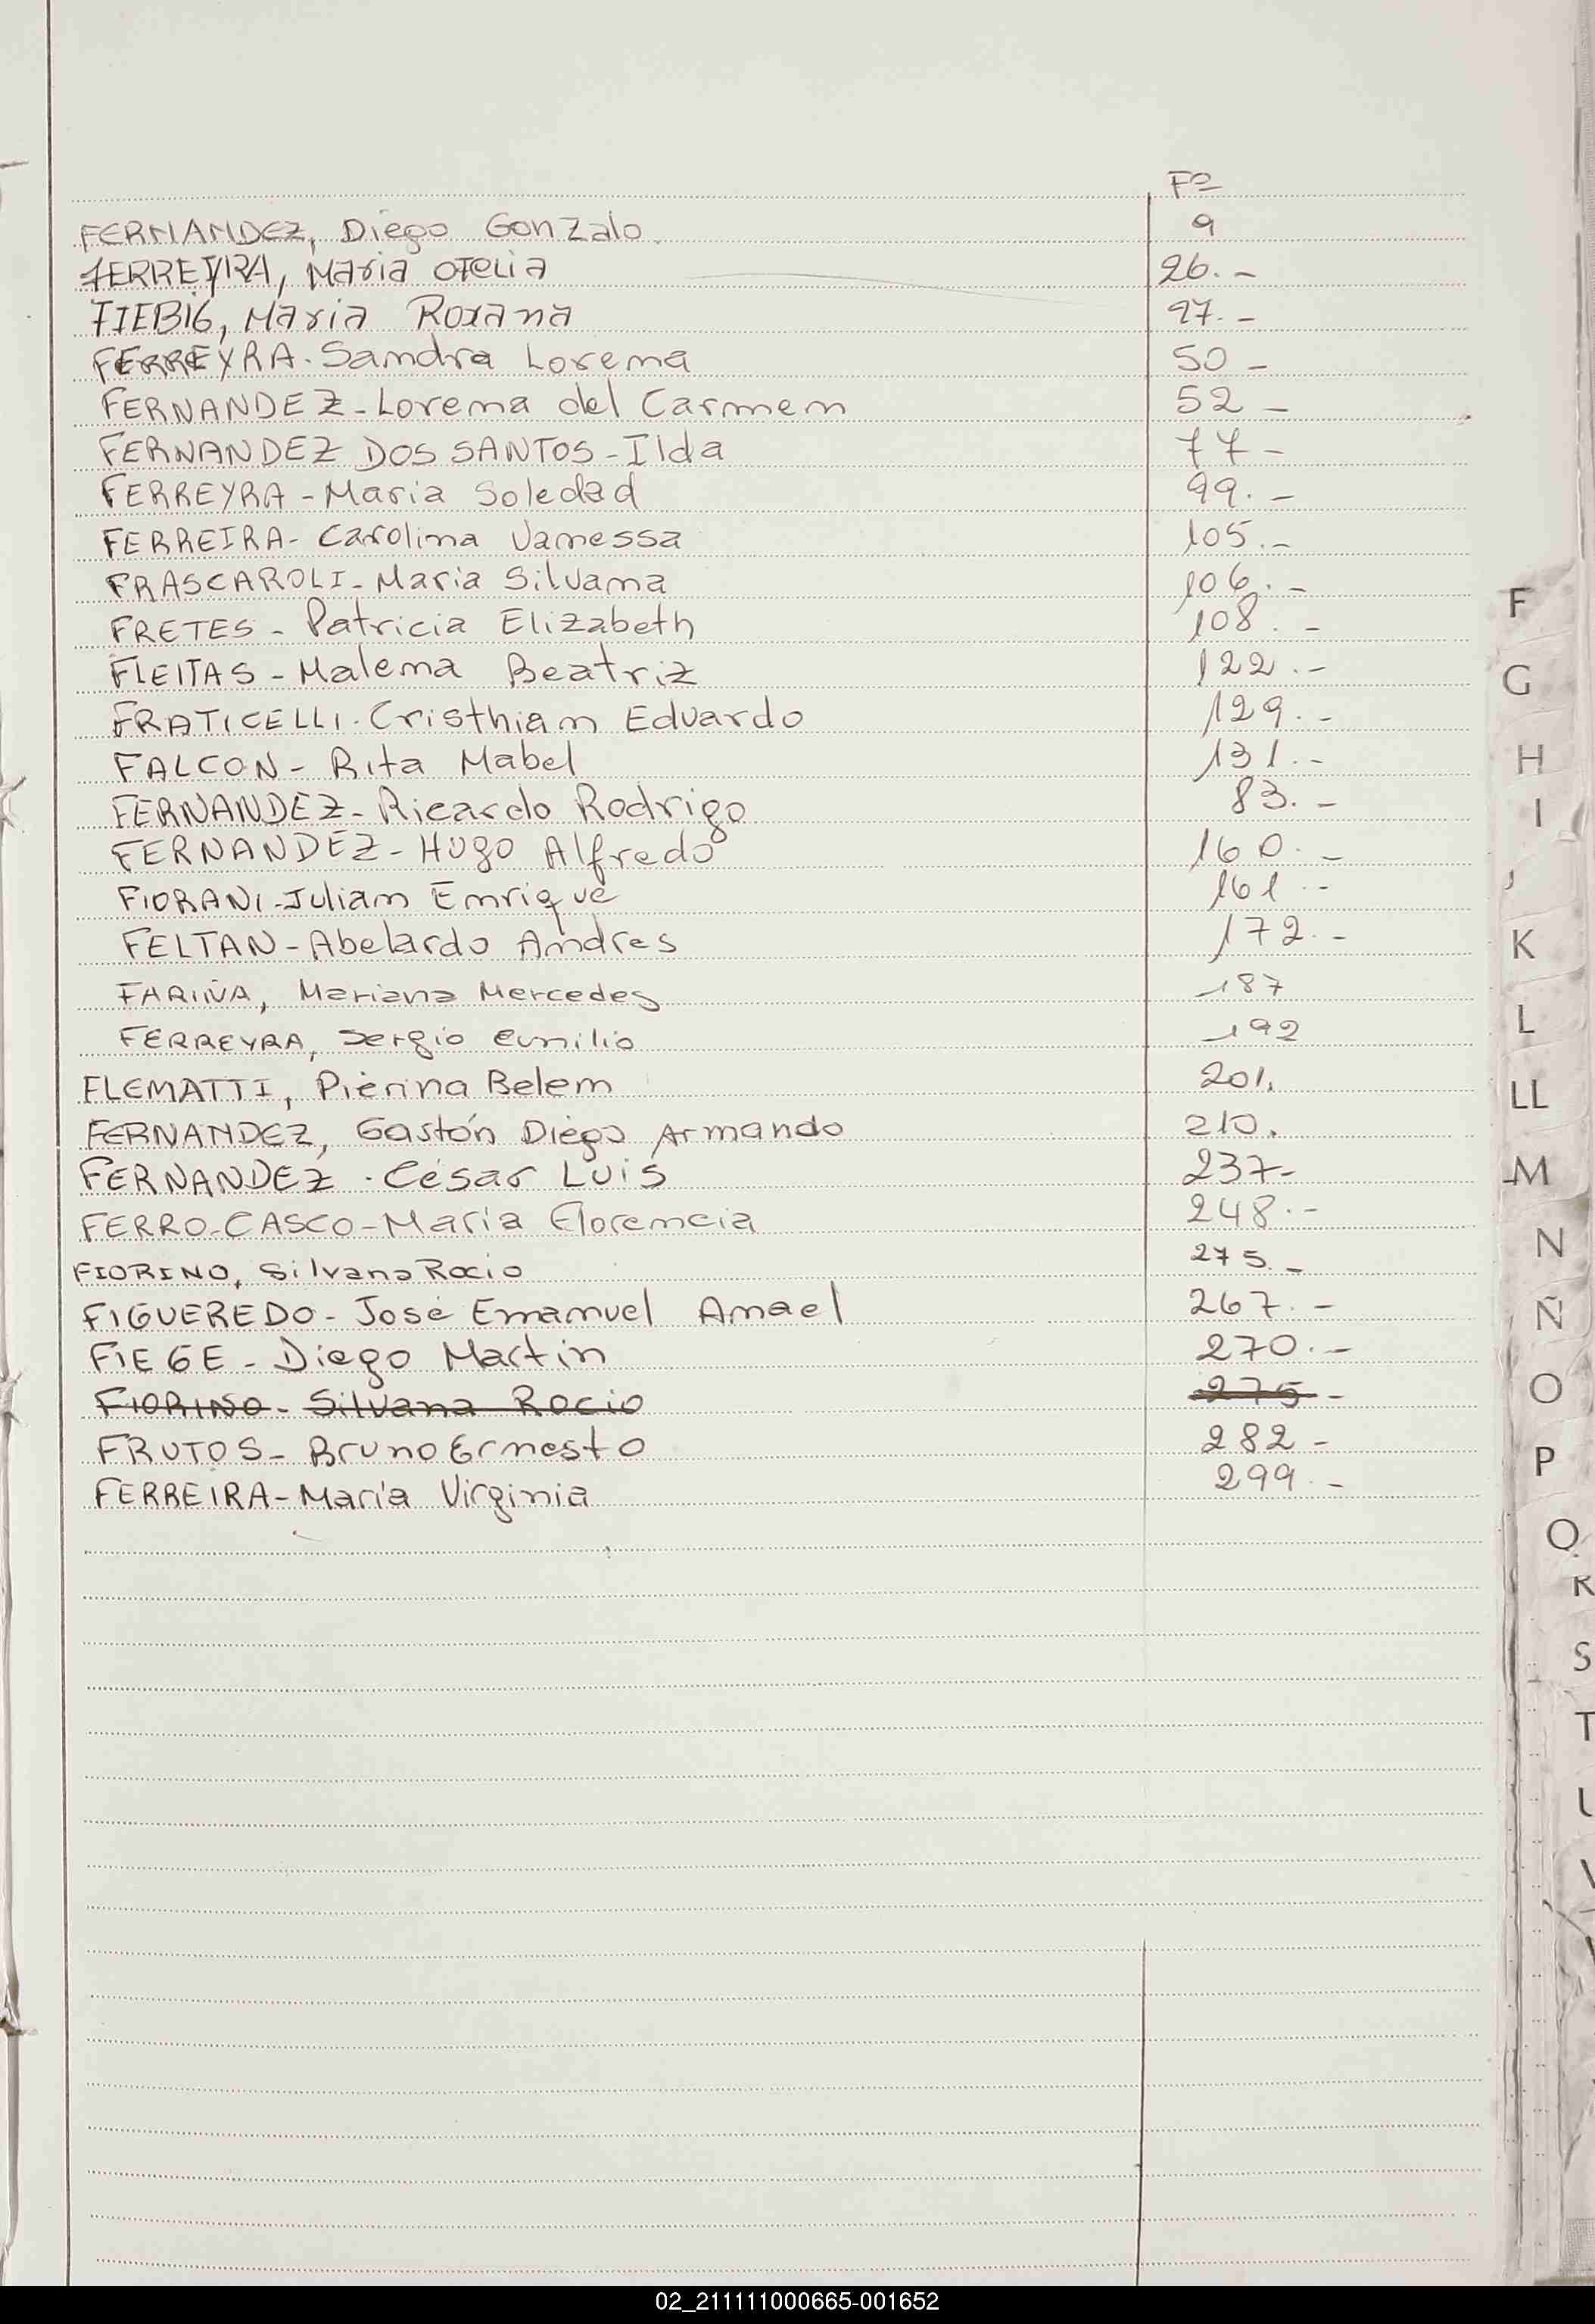 Fº
FERNANDEZ, Diego Gonzalo. 9
FERREYRA, Maria Ofelia 26.-
FIEBIG, Maria Roxana 27.-
FERREYRA. Sandra Lorena 50 -
FERNANDEZ - Lorena del Carmen 52 -
FERNANDEZ DOS SANTOS - Ilda 77 -
FERREYRA - Maria Soledad 99.-
FERREIRA - Carolina Vanessa 105.-
FRASCAROLI - Maria Silvana 106.-
FRETES - Patricia Elizabeth 108.-
FLEITAS - Malena Beatriz 122.-
FRATICELLI. Cristhian Eduardo 129.-
FALCON - Rita Mabel 131.-
FERNANDEZ - Ricardo Rodrigo 83.-
FERNANDEZ - Hugo Alfredo 160.-
FIORANI - Julian Enrique 161.-
FELTAN - Abelardo Andres 172.-
FARIÑA, Mariana Mercedes 187
FERREYRA, Sergio Emilio 192
FLEMATTI, Pierina Belem 201.
FERNANDEZ, Gastón Diego Armando 210.
FERNANDEZ. César Luis 237-
FERRO-CASCO - María Florencia 248.-
FIORINO, Silvana Rocio 275.-
FIGUEREDO - José Emanuel Amael 267.-
FIEGE - Diego Martin 270.-
FIORINO - Silvana Rocio 275 -
FRUTOS - Bruno Ernesto 282 -
FERREIRA - María Virginia 299.-
F
G
H
I
J
K
L
LL
M
N
Ñ
O
P
Q
R
S
T
U
V
02_211111000665-001652